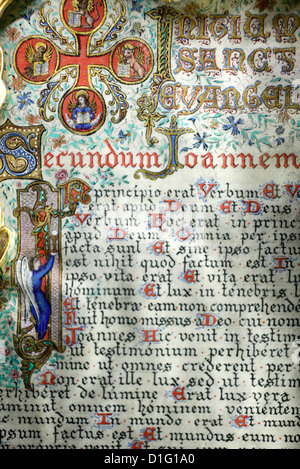 Initium
Sancti
Evangel
Secundum Joannem
In principio erat Verbum Et V
erat apud Deum et Deus
Verbum Hoc erat in princi
apud Deum Omnia per i
facta sunt Et sine ipso factu
est nihil quod factum est I
ipso vita erat Et vita erat
hominum Et lux in tenebris
Et tenebrae eam non comprehende
Fuit homo missus a Deo cui nom
Joannes Hic venit in testim
ut testimonium perhiberet
mine ut omnes crederent per
Non erat ille lux sed ut testim
perhiberet de lumine Erat lux vera
minat omnem hominem venienten
mundum In mundo erat
ipsum factus est Et mundus eum
alamy
Image ID: D1G1A0
www.alamy.com